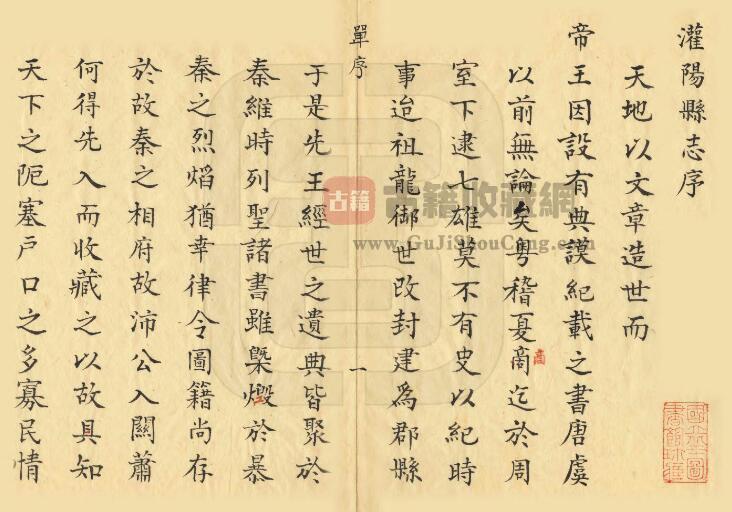 灌陽縣志序
天地以文章造世而
帝王因設有典謨紀載之書唐虞
以前無論矣粤稽夏啇迄於周
商
室下逮七雄莫不有史以紀時
事迨祖龍御世改封建為郡縣
單序
一
于是先王經世之遺典皆聚於
秦維時列聖諸書雖槩燬於暴
秦之烈焰猶幸律令圖籍尚存
於故秦之相府故沛公入關蕭
何得先入而收藏之以故具知
天下之阨塞戶口之多寡民情
古籍
古籍收藏網
www.GuJiShouCang.com